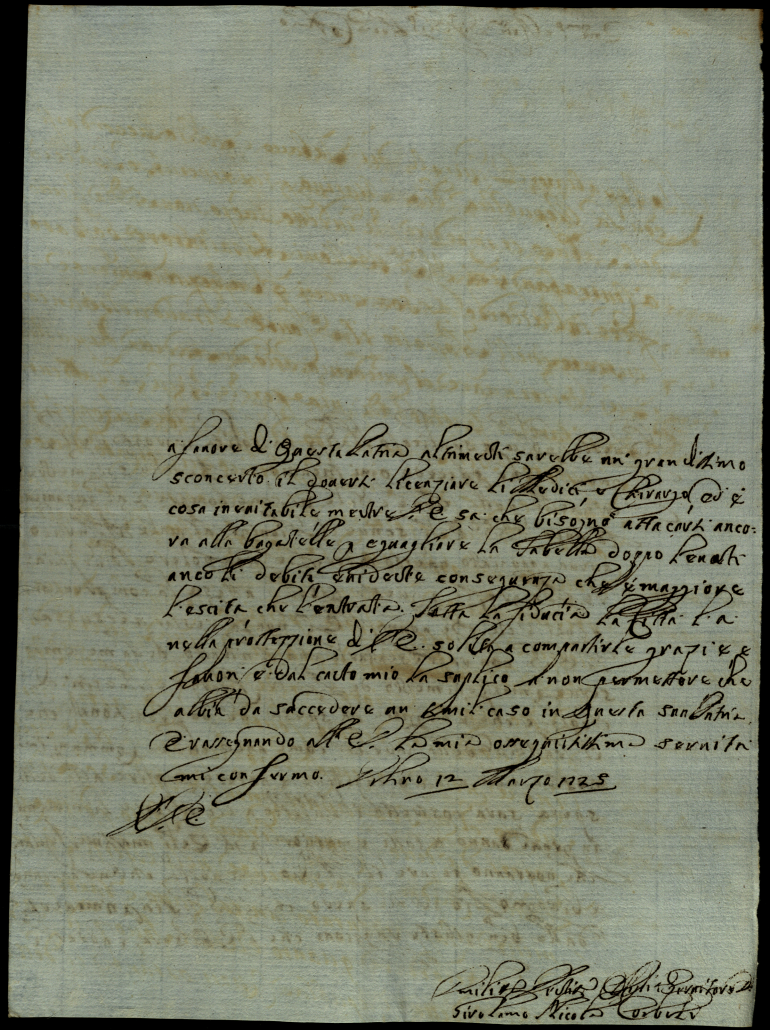 a favore di questa Patria altrimenti sarebbe un grandissimo
sconcerto il doversi licenziare li Medici, e Chirurgo ed è
cosa inevitabile mentre V.E. sa che bisogna attaccarsi anco-
ra alla bagatelle p eguagliare la Tabella doppo levati
anco li debiti evidente conseguenza che è maggiore
l'escita che l'entrata. Tutta la fiducia la Città l'ha
nella protezzione di V.E. solita a compartirle grazie e
favori e dal canto mio la suplico a non permettere che
abbia da succedere un simil caso in questa sua Patria
E rassegnando all'E.V. la mia ossequiosissima servitù
mi confermo. Urbino 12 Marzo 1725
V.E.
Umiliss Devotiss Servitore
Girolamo Nicola